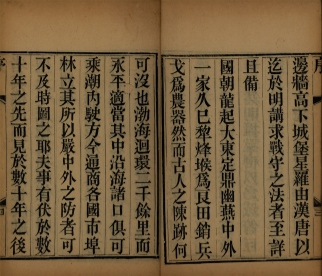 序
邊牆高下城堡星羅由漢唐以
迄於明講求戰守之法者至詳
且備
國朝龍起大東定鼎幽燕中外
一家久已黎烽堠爲良田銷兵
戈爲農器然而古人之陳跡何
可沒也渤海迴環二千餘里而
永平適當其中沿海諸口俱可
乘潮內駛方今通商各國市埠
林立其所以嚴中外之防者可
不及時圖之耶夫事有伏於數
十年之先而見於數十年之後